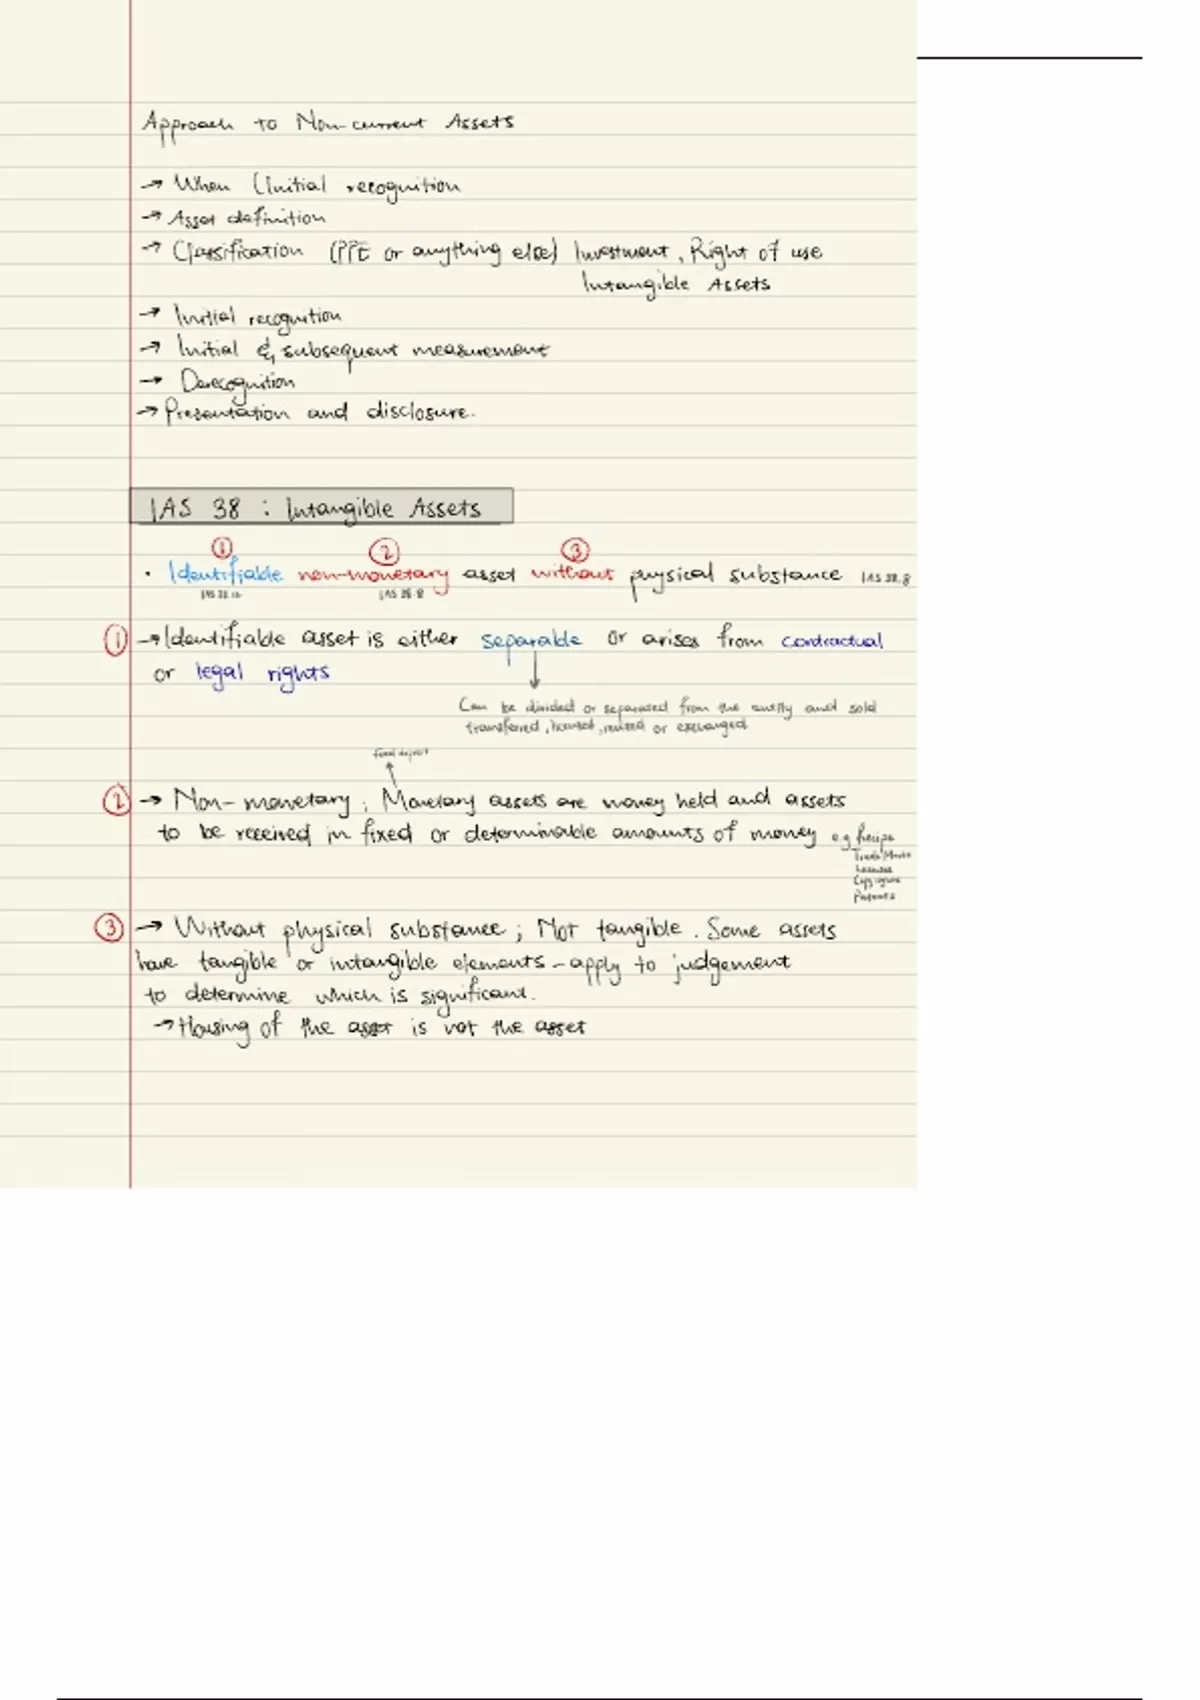 Approach to Non-current Assets
→ When (Initial recognition
→ Asset definition
→ Classification (PPE or anything else) Investment, Right of use
Intangible Assets
→ Initial recognition
→ Initial & subsequent measurement
→ Derecognition
→ Presentation and disclosure.
IAS 38 : Intangible Assets
① ② ③
· Identifiable non-monetary asset without physical substance IAS 38.8
IAS 38.12 IAS 38.8
① → Identifiable asset is either separable or arises from contractual
or legal rights
Can be divided or separated from the entity and sold
transferred, licensed, rented or exchanged
fixed deposit
② → Non-monetary; Monetary assets are money held and assets
to be received in fixed or determinable amounts of money e.g
Trade Marks
Licenses
Copy rights
Patents
③ → Without physical substance; Not tangible. Some assets
have tangible or intangible elements - apply to judgement
to determine which is significant.
→ Housing of the asset is not the asset